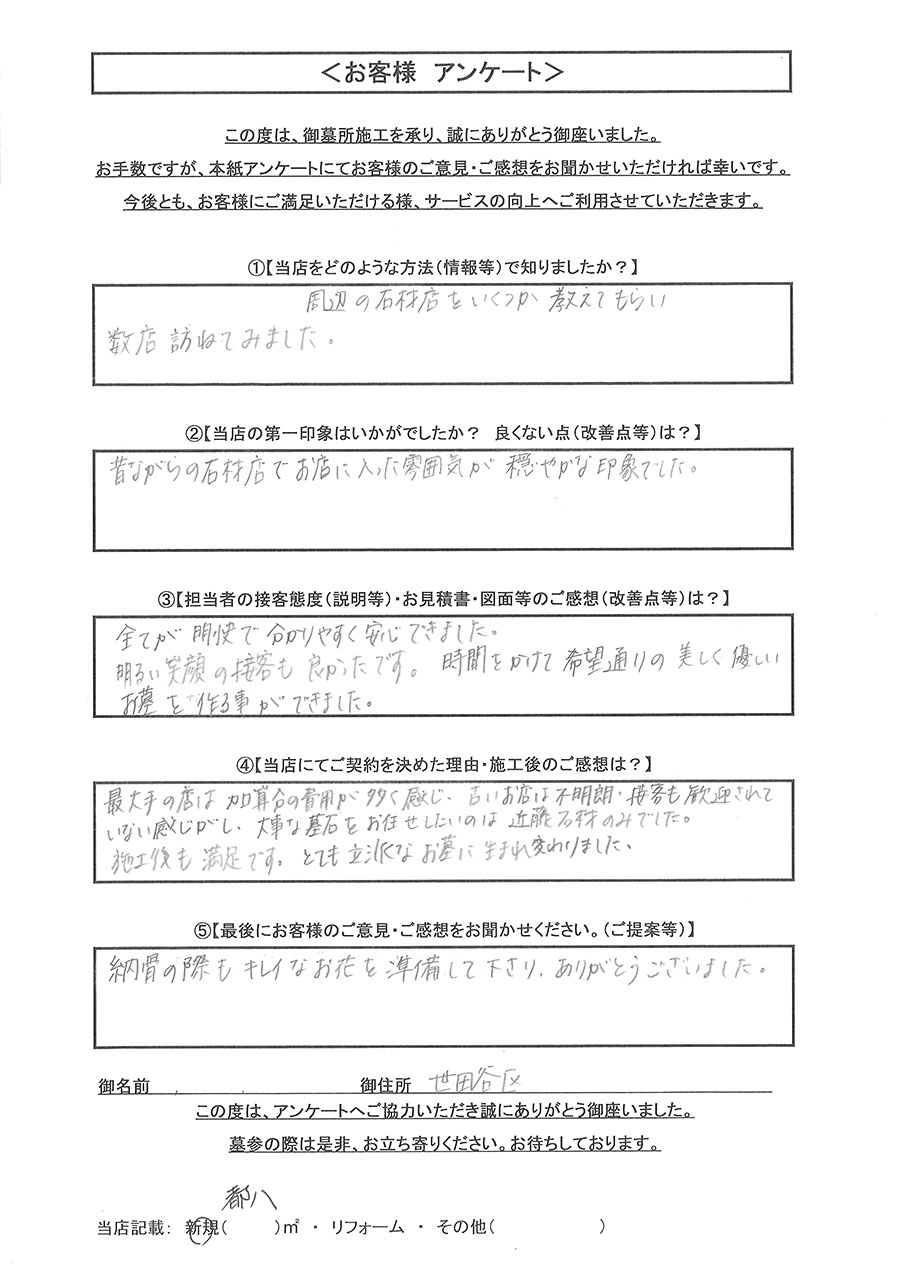 ＜お客様　アンケート＞
この度は、御墓所施工を承り、誠にありがとう御座いました。
お手数ですが、本紙アンケートにてお客様のご意見・ご感想をお聞かせいただければ幸いです。
今後とも、お客様にご満足いただける様、サービスの向上へご利用させていただきます。
①【当店をどのような方法（情報等）で知りましたか？】
周辺の石材店をいくつか教えてもらい
数店訪ねてみました。
②【当店の第一印象はいかがでしたか？　良くない点（改善点等）は？】
昔ながらの石材店でお店に入った雰囲気が穏やかな印象でした。
③【担当者の接客態度（説明等）・お見積書・図面等のご感想（改善点等）は？】
全てが明快で分かりやすく安心できました。
明るい笑顔の接客も良かったです。時間をかけて希望通りの美しく優しい
お墓を作る事ができました。
④【当店にてご契約を決めた理由・施工後のご感想は？】
最大手の店は加算分の費用が多く感じ、古いお店は不明朗・接客も歓迎されて
いない感じがし、大事な墓石をお任せしたいのは近藤石材のみでした。
施工後も満足です。とても立派なお墓に生まれ変わりました、
⑤【最後にお客様のご意見・ご感想をお聞かせください。（ご提案等）】
納骨の際もキレイなお花を準備して下さり、ありがとうございました。
御名前　御住所　世田谷区
この度は、アンケートへご協力いただき誠にありがとう御座いました。
墓参の際は是非、お立ち寄りください。お待ちしております。
都八
当店記載：　新規（　　）㎡ ・ リフォーム ・ その他（　　　　　）